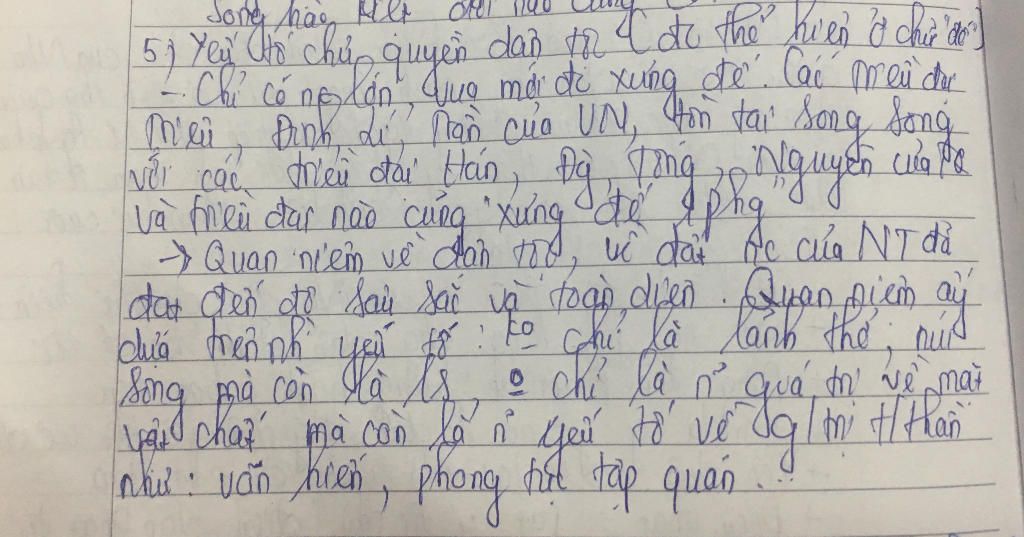 Song hào kiệt đời nào cũng
5) Yếu tố chủ quyền dân tộc (đc thể hiện ở chữ "đế")
- Chỉ có nc lớn, vua mới đc xưng đế. Các triều đại
Triệu, Đinh, Lí, Trần của VN, tồn tại song song
với các triều đại Hán, Đg, Tống, Nguyên của TQ
và triều đại nào cũng "xưng đế 1 phg"
→ Quan niệm về dân tộc, về đất nc của NT đã
đạt đến độ sâu sắc và toàn diện. Quan niệm ấy
dựa trên nh yếu tố: ko chỉ là lãnh thổ, núi
sông mà còn là ls, o chỉ là n~ giá trị về mặt
vật chất mà còn là n~ yếu tố về g/trị t/thần
như: văn hiến, phong tục tập quán...